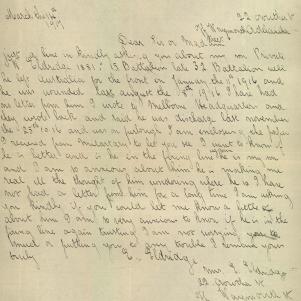 22 Crowther St
March the 14th
1917
Dear Sir or Madam
Just a line in kindly asking you about my son Private
W Eldridge 1881. 15 Battalion late 32 Battalion well
he left Australia for the front on January the 1916 and
he was wounded last august the 9th 1916 I have had
no letter from him I wrote to Melbourne Headquarters and
they wrote back and said he was discharge last november
the 25th 10.16 and was on furlough I am enclosing the paper
I received from Melbourne to let you see I want to know if
he is better and is he in the firing line again he is my son
and I am so anxious about him he is making me
real ill the thought of him wondering where he is I have
not had a letter from him for a long time I am asking
you kindly if you could let me know a little
about him I am so very anxious to know if he is in the
firing line again trusting I am not worrying you to
much or putting you to any trouble I remain yours
truly E. Eldridge
Mrs. E. Eldridge
22 Crowther St